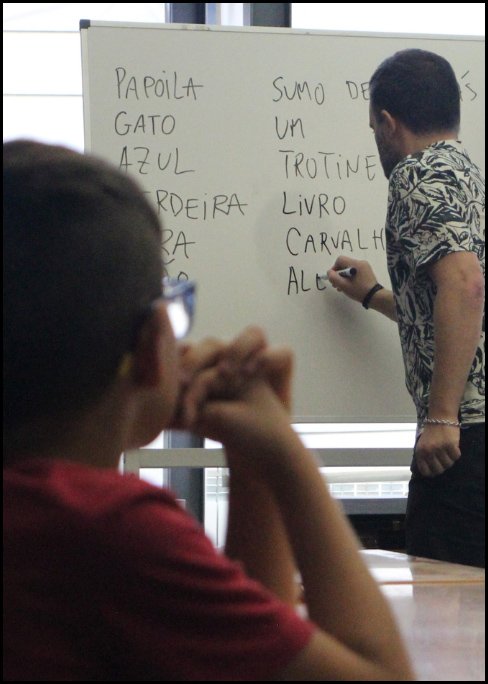 PAPOILA
GATO
AZUL
RDEIRA
RA
O
SUMO DE
UM
TROTINE
LIVRO
CARVALH
ALE